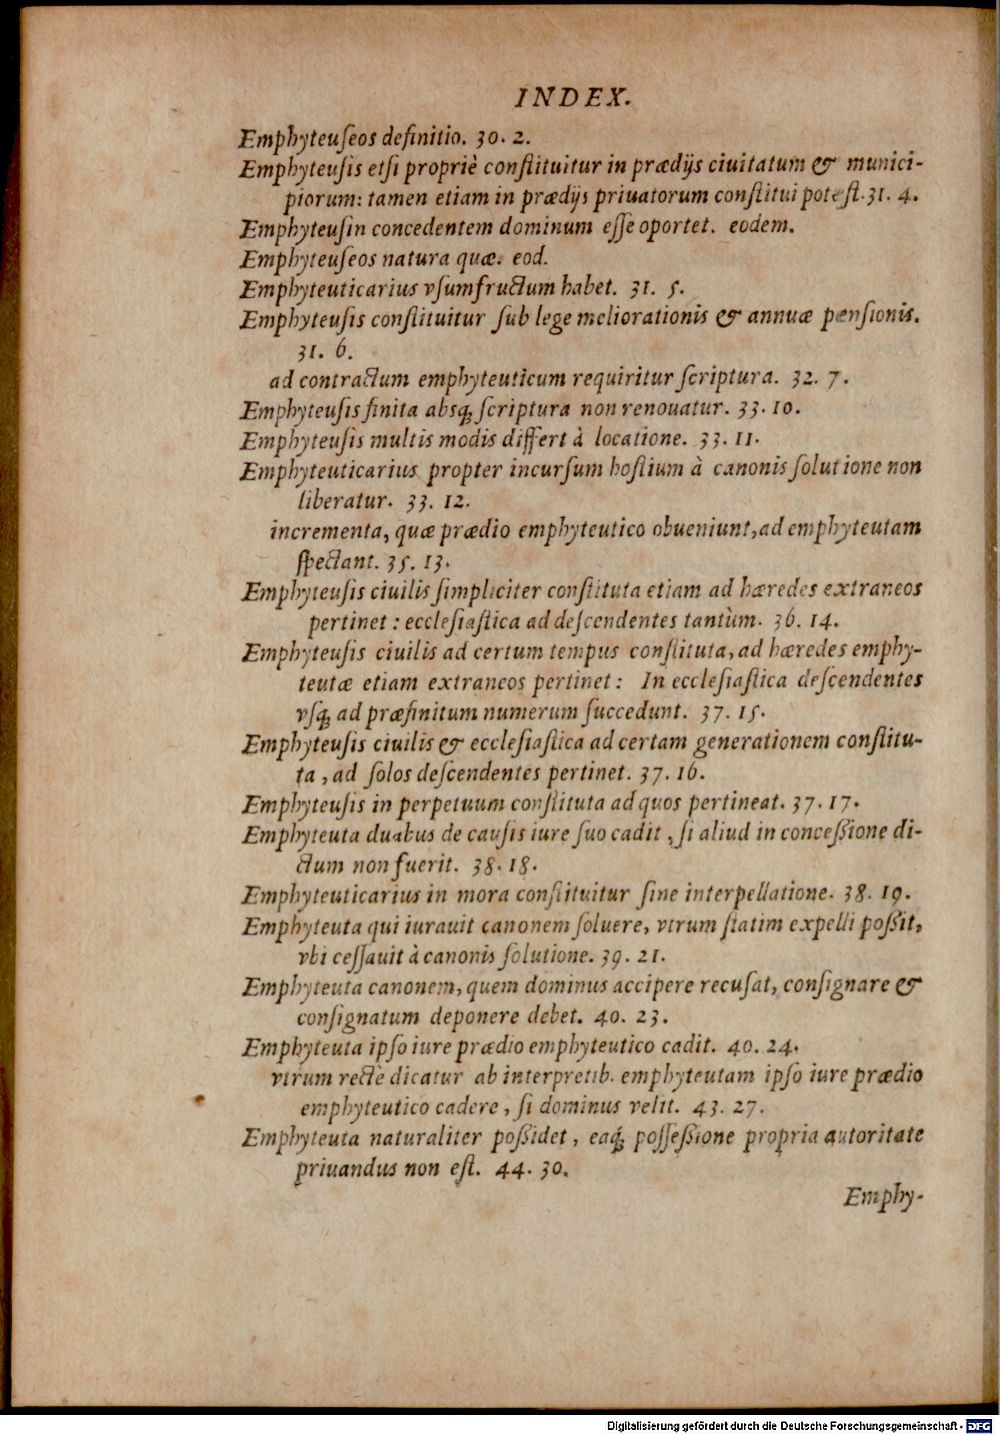 INDEX.
Emphyteuſeos definitio. 30. 2.
Emphyteuſis etſi propriè conſtituitur in prædijs ciuitatum & munici-
piorum: tamen etiam in prædijs priuatorum conſtitui poteſt. 31. 4.
Emphyteuſin concedentem dominum eſſe oportet. eodem.
Emphyteuſeos natura quæ. eod.
Emphyteuticarius vſumfructum habet. 31. 5.
Emphyteuſis conſtituitur ſub lege meliorationis & annuæ penſionis.
31. 6.
ad contractum emphyteuticum requiritur ſcriptura. 32. 7.
Emphyteuſis finita absq́; ſcriptura non renouatur. 33. 10.
Emphyteuſis multis modis differt à locatione. 33. 11.
Emphyteuticarius propter incurſum hoſtium à canonis ſolutione non
liberatur. 33. 12.
incrementa, quæ prædio emphyteutico obueniunt, ad emphyteutam
ſpectant. 35. 13.
Emphyteuſis ciuilis ſimpliciter conſtituta etiam ad hæredes extraneos
pertinet: eccleſiaſtica ad deſcendentes tantùm. 36. 14.
Emphyteuſis ciuilis ad certum tempus conſtituta, ad hæredes emphy-
teutæ etiam extraneos pertinet: In eccleſiaſtica deſcendentes
vſq́; ad præfinitum numerum ſuccedunt. 37. 15.
Emphyteuſis ciuilis & eccleſiaſtica ad certam generationem conſtitu-
ta, ad ſolos deſcendentes pertinet. 37. 16.
Emphyteuſis in perpetuum conſtituta ad quos pertineat. 37. 17.
Emphyteuta duabus de cauſis iure ſuo cadit, ſi aliud in conceßione di-
ctum non fuerit. 38. 18.
Emphyteuticarius in mora conſtituitur ſine interpellatione. 38. 19.
Emphyteuta qui iurauit canonem ſoluere, vtrum ſtatim expelli poßit,
vbi ceſſauit à canonis ſolutione. 39. 21.
Emphyteuta canonem, quem dominus accipere recuſat, conſignare &
conſignatum deponere debet. 40. 23.
Emphyteuta ipſo iure prædio emphyteutico cadit. 40. 24.
vtrum rectè dicatur ab interpretib. emphyteutam ipſo iure prædio
emphyteutico cadere, ſi dominus velit. 43. 27.
Emphyteuta naturaliter poßidet, eaq́; poſſeßione propria autoritate
priuandus non eſt. 44. 30.
Emphy-
Digitalisierung gefördert durch die Deutsche Forschungsgemeinschaft - DFG